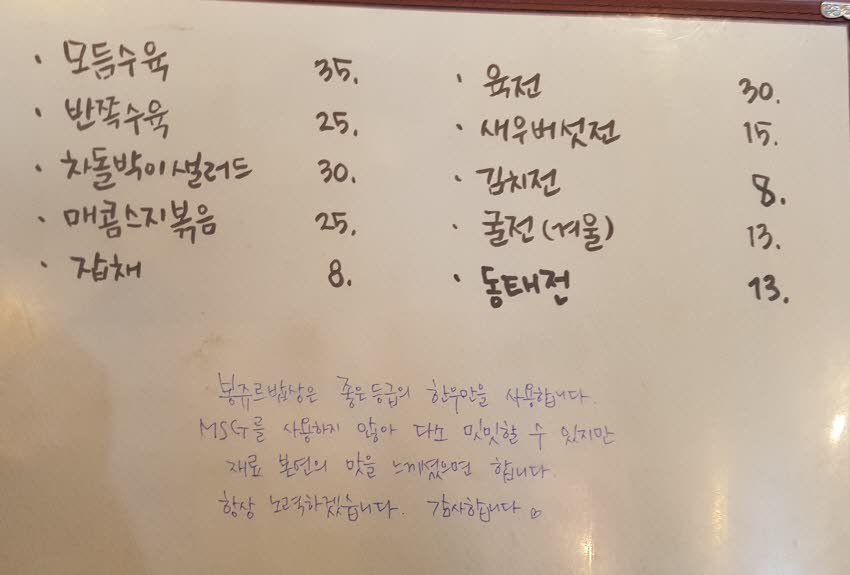 · 모듬수육 35.
· 반쪽수육 25.
· 차돌박이샐러드 30.
· 매콤스지볶음 25.
· 잡채 8.
· 육전 30.
· 새우버섯전 15.
· 김치전 8.
· 굴전(겨울) 13.
· 동태전 13.
봉쥬르밥상은 좋은등급의 한우만을 사용합니다.
MSG를 사용하지 않아 다소 밋밋할 수 있지만
재료 본연의 맛을 느끼셨으면 합니다.
항상 노력하겠습니다. 감사합니다